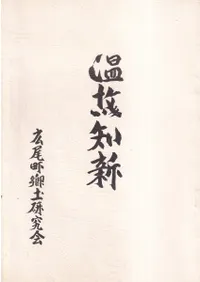 温故知新
広尾町郷土研究会